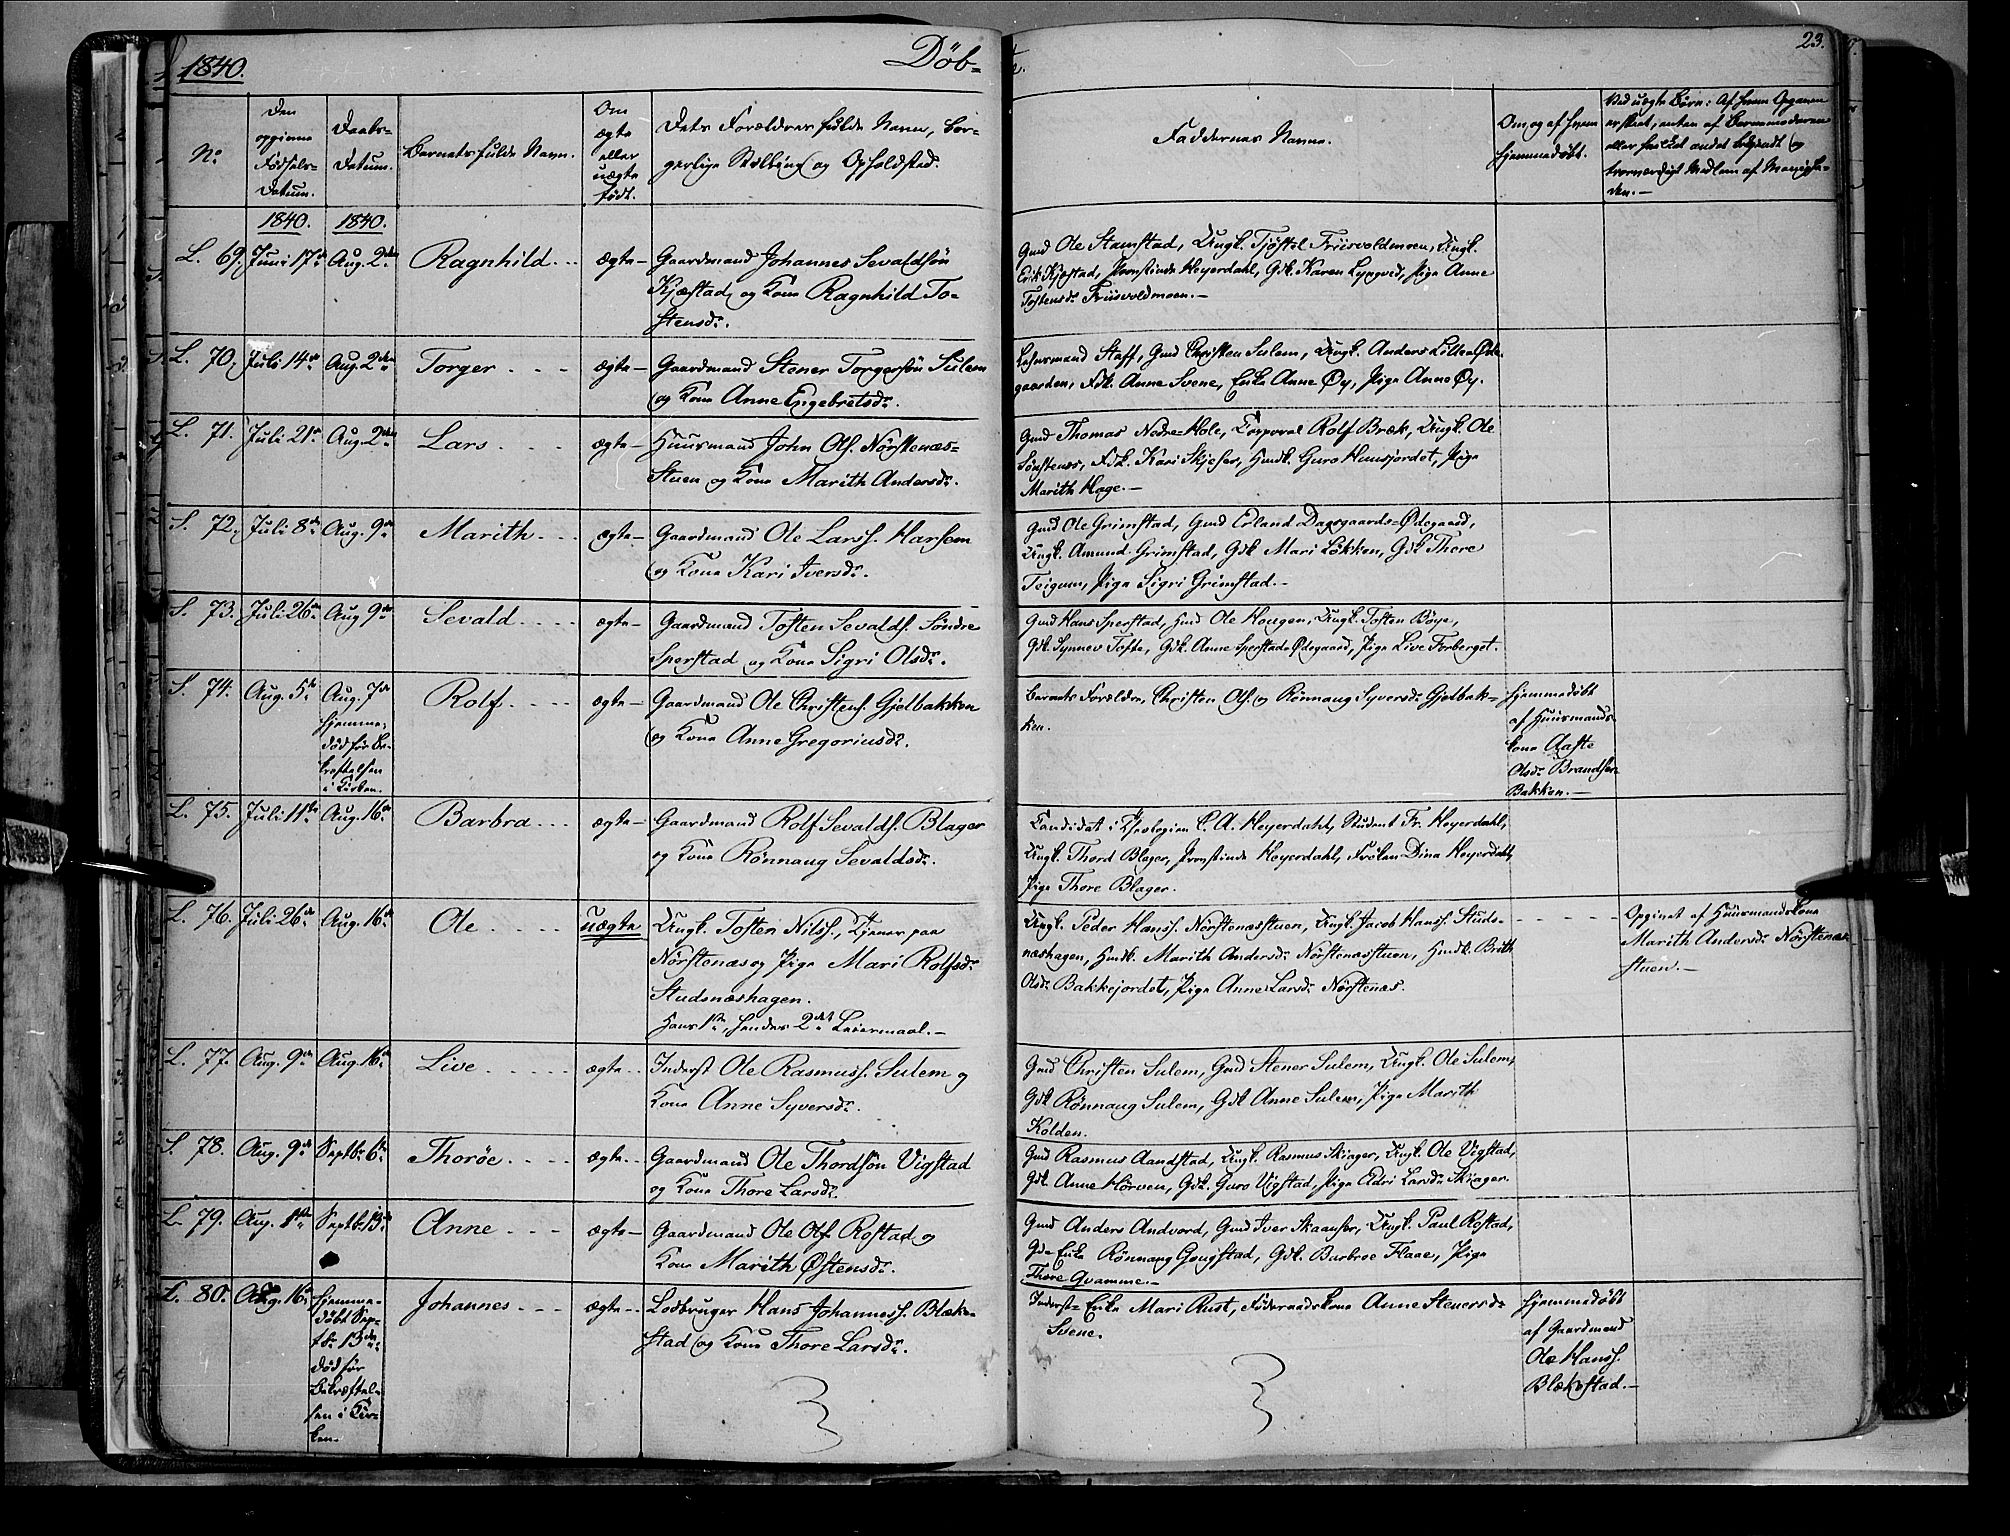 1840.
Døb-
te.
23.
No
Den
opgivne
Fødsels-
Datum.
Daabs-
Datum.
Barnets fulde Navn.
Om
ægte
eller
uægte
født.
Dets Forældres fulde Navn, bor-
gerlige Stilling og Opholdsted.
Faddernes Navne.
Om og af hvem
hjemmedøbt.
Ved uægte Børn: Af hvem Opgaven
er skeet, enten af Barnemoderen
eller hvilket andet bekjendt og
troværdigt Medlem af Menighe-
den.-
1840. 1840.
L. 69. Juni 17de Aug. 2den Ragnhild ægte- Gaardmand Johannes Sevaldsøn
Kjæstad og Kone Ragnhild To-
stensdr.
Gmd Ole Stamstad, Ungk. Tjøstel Friisvoldmoen, Ungk.
Erik Kjøstad, Provstinde Heyerdahl, Gdk. Karen Lyngved, Pige Anne
Tostensdr Friisvoldmoen.-
L. 70. Juli 14de Aug. 2den Torger ægte- Gaardmand Stener Torgersøn Sulem
og Kone Anne Engebretsdr.
Lehnsmand Staff, Gmd Christen Sulem, Ungk. Anders Lille Øde-
gaarden, Fdk. Anne Svene, Enke Anne Øy, Pige Anne Øy.
L. 71. Juli 21de Aug. 2den Lars ægte- Huusmand John Ols. Nørstenæs-
Stuen og Kone Marith Andersdr.
Gmd Thomas Nedre-Hole, Corporal Rolf Bræk, Ungk. Ole
Sønstenes, Fdk. Kari Skjefer, Hmdk. Guro Huusjordet, Pige
Marith Hage.-
S. 72. Juli 8de Aug. 9de Marith ægte- Gaardmand Ole Larss. Harsem
og Kone Kari Iversdr.
Gmd Ole Grimstad, Gmd Erland Dagsgaards-Ødegaard,
Ungk. Amund Grimstad, Gdk Mari Løkken, Gdk Thore
Teigum, Pige Sigri Grimstad.-
S. 73. Juli 26de Aug 9de Sevald ægte- Gaardmand Tosten Sevalds. Søndre
Sperstad og Kone Sigri Olsdr.
Gmd Hans Sperstad, Hmd Ole Haugen, Ungk. Tosten Bøye,
Gdk. Synnev Tofte, Gdk. Anne Sperstad-Ødegaard, Pige Live Forberget.
S. 74. Aug. 5te Aug. 7de Rolf ægte- Gaardmand Ole Christens. Gjelbakken
hjemme;
død før Be-
kræftelsen
i Kirken.
og Kone Anne Gregoriusdr.
Barnets Forældre, Christen Ols. og Rønnaug Syversdr Gjelbak-
ken.
hjemmedøbt
af Huusmands-
kone Aaste
Olsdr Brandser-
Bakken.-
L. 75. Juli 11te Aug. 16de Barbra ægte- Gaardmand Rolf Sevalds. Blager
og Kone Rønnaug Sevaldsdr.
Candidat i Theologien C. A. Heyerdahl, Student Fr. Heyerdahl,
Ungk. Thord Blager, Provstinde Heyerdahl, Frøken Dina Heyerdahl,
Pige Thore Blager.
L. 76. Juli 26de Aug. 16de Ole uægte Ungk. Tosten Nilss., Tjener paa
Nørstenæs og Pige Mari Rolfsdr
Studsnæshagen.
Hans 1ste, hendes 2det Leiermaal.-
Ungk. Peder Hanss. Nørstenæsstuen, Ungk. Jacob Hanss. Studs-
næshagen, Hmdk. Marith Andersdr Nørstenæsstuen, Hmdk. Brith
Olsdr Bakkejordet, Pige Anne Larsdr Nørstenæs.
Opgivet af Huusmandskone
Marith Andersdr Nørstenæs-
stuen.-
L. 77. Aug. 9de Aug. 16de Live ægte Inderst Ole Rasmuss. Sulem og
Kone Anne Syversdr.
Gmd Christen Sulem, Gmd Stener Sulem, Ungk. Ole Sulem,
Gdk Rønnaug Sulem, Gdk Anne Sulem, Pige Marith
Kolden.
S. 78. Aug. 9de Septbr 6te Thorøe ægte Gaardmand Ole Thordsøn Vigstad
og Kone Thore Larsdr.
Gmd Rasmus Aandstad, Ungk. Rasmus Skiager, Ungk. Ole Vigstad,
Gdk. Anne Hørven, Gdk. Guro Vigstad, Pige Eldri Larsdr Skiager.
L. 79. Aug. 1ste Septbr 13de Anne ægte- Gaardmand Ole Ols. Rostad og
Kone Marith Østensdr.
Gmd Anders Andvord, Gmd Iver Skaanser, Ungk. Paul Rostad,
Gde Enke Rønnaug Gougstad, Gdk. Barbroe Flaae, Pige
Thore Qvamme.-
L. 80. Aug. 16de hjemme- Johannes ægte- Lodbruger Hans Johanness. Blæke-
døbt Sep-
tbr 13de;
død før
Bekræftel-
sen i Kir-
ken-
stad og Kone Thore Larsdr.
Inderst-Enke Mari Rust, Føderaadskone Anne Stenersdr
Svene.
hjemmedøbt
af Gaardmand
Ole Hanss.
Blækestad.-